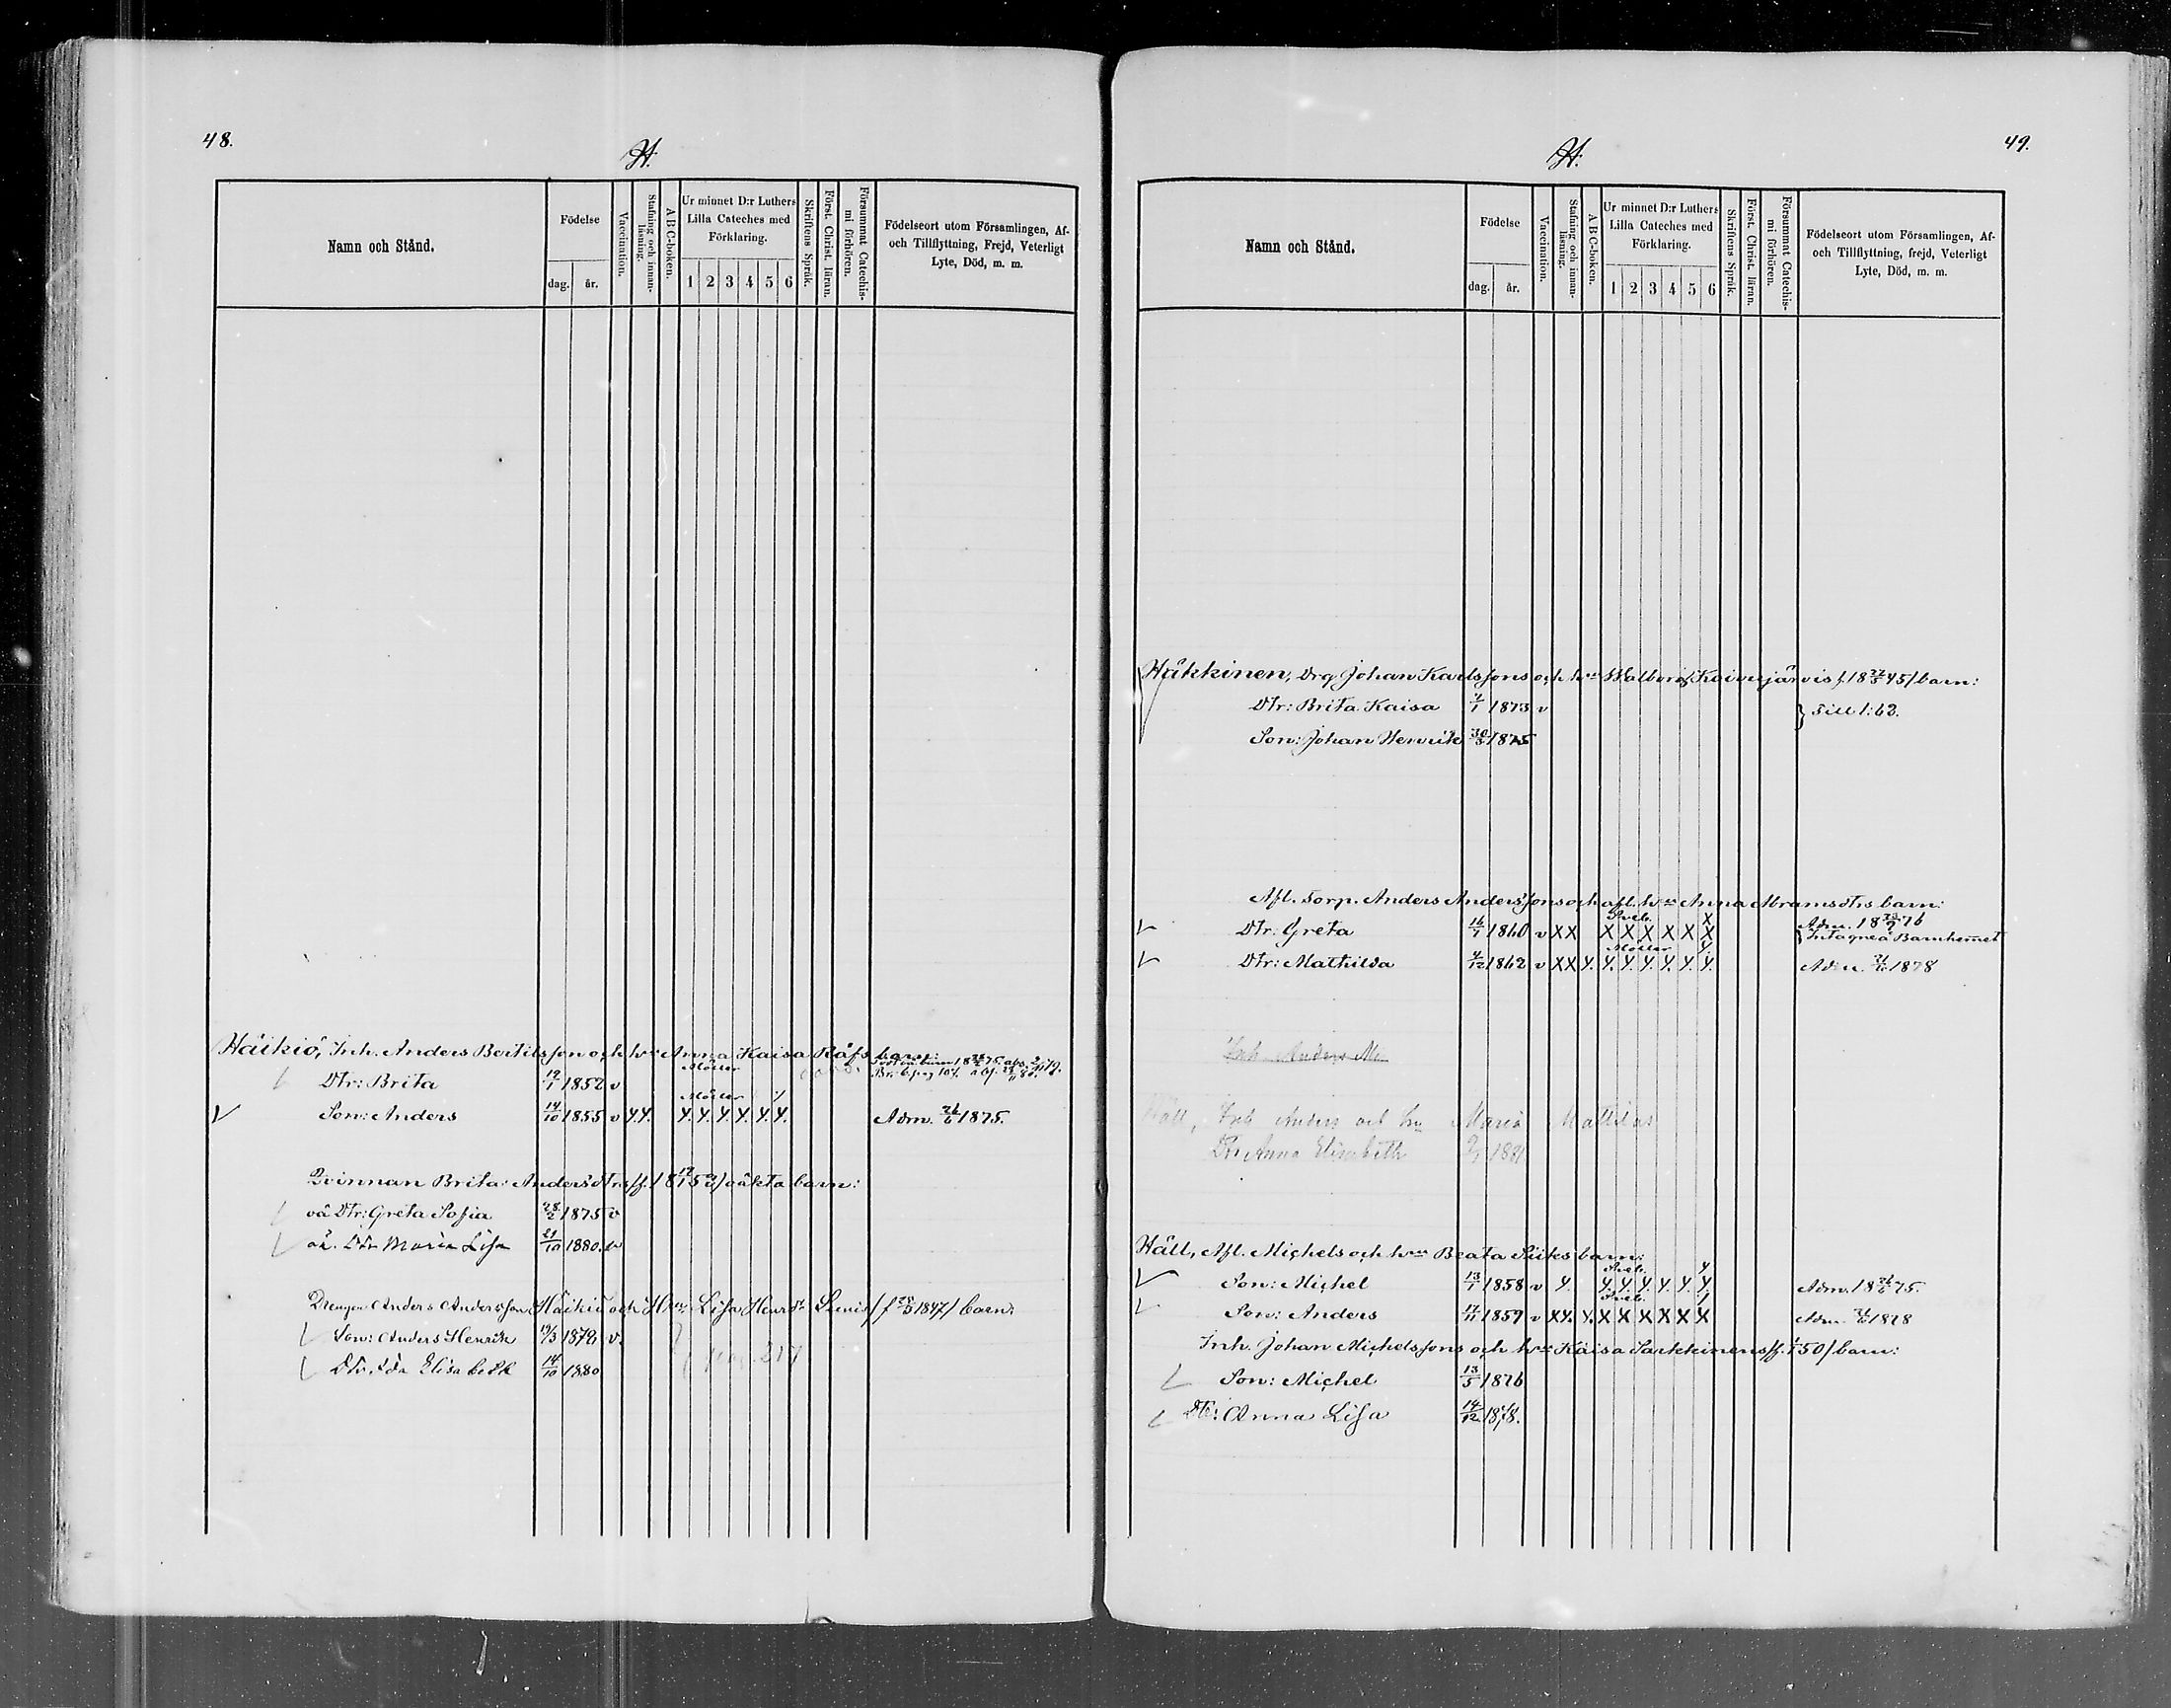 48.
H.
Namn och Stånd.
Födelse
dag.
år.
Vaccination.
Stafning och innan-
läsning.
A B C-boken.
Ur minnet D:r Luthers
Lilla Cateches med
Förklaring.
1 2 3 4 5 6
Skriftens Språk.
Först. Christ. läran.
Försummat Catechis-
mi förhören.
Födelseort utom Församlingen, Af-
och Tillflyttning, Frejd, Veterligt
Lyte, Död, m. m.
Häikiö, Inh. Anders Bertilsson och h:u Anna Kaisa Räfs barn:
Dtr: Brita 12/1 1852 v Möller
Son: Anders 14/10 1855 v Y.Y. Möller Y. Y. Y. Y. Y. Y. Adm. 26/6 1875.
Qvinnan Brita Andersdtrs /f. 18 12/1 52/ oäkta barn:
oä Dtr: Greta Sofia 28/2 1875 v
oä. Dtr Maria Lisa 21/10 1880. v
Drengen Anders Andersson Häikiö och H:u Lisa Henrsdr /f 1847/ barn:
Son: Anders Henrik 19/3 1872 v.
Dtr. Ida Elisabeth 14/10 1880
pag. 217
49.
H.
Namn och Stånd.
Födelse
dag.
år.
Vaccination.
Stafning och innan-
läsning.
A B C-boken.
Ur minnet D:r Luthers
Lilla Cateches med
Förklaring.
1 2 3 4 5 6
Skriftens Språk.
Först. Christ. läran.
Försummat Catechis-
mi förhören.
Födelseort utom Församlingen, Af-
och Tillflyttning, frejd, Veterligt
Lyte, Död, m. m.
Häkkinen, Drg Johan Karlssons och h:u Walborg Koivujärvis f. 18 22/5 45/ barn:
Dtr: Brita Kaisa 2/1 1873 v } Till 1:63.
Son: Johan Henrik 30/3 1875
Afl. Torp. Anders Anderssons och afl. h:u Anna Abramsdtrs barn:
Dtr: Greta 16/1 1860 v X X Sveb. X X X X X X X Adm. 18 76
Intagen å Barnhemmet
Dtr: Mathilda 4/12 1862 v X X Y. Möller Y. Y. Y. Y. Y. Y. Adm. 1878
Inh. Anders M
Häll, Inh Anders och hu Maria Mattilas
Dtr Anna Elisabeth
Häll, Afl. Michels och h:u Beata Siiks barn:
Son: Michel 13/1 1858 v Y. Sveb. Y. Y. Y. Y. Y. Y. Y Adm. 18 26/6 75.
Son: Anders 17/11 1859 v X Y. Y. Sveb. X X X X X X Adm. 1878
Inh. Johan Michelssons och h:u Kaisa Sarkkinens /f. 50/ barn:
Son: Michel 13/5 1876
Dtr: Anna Lisa 14/12 1878.